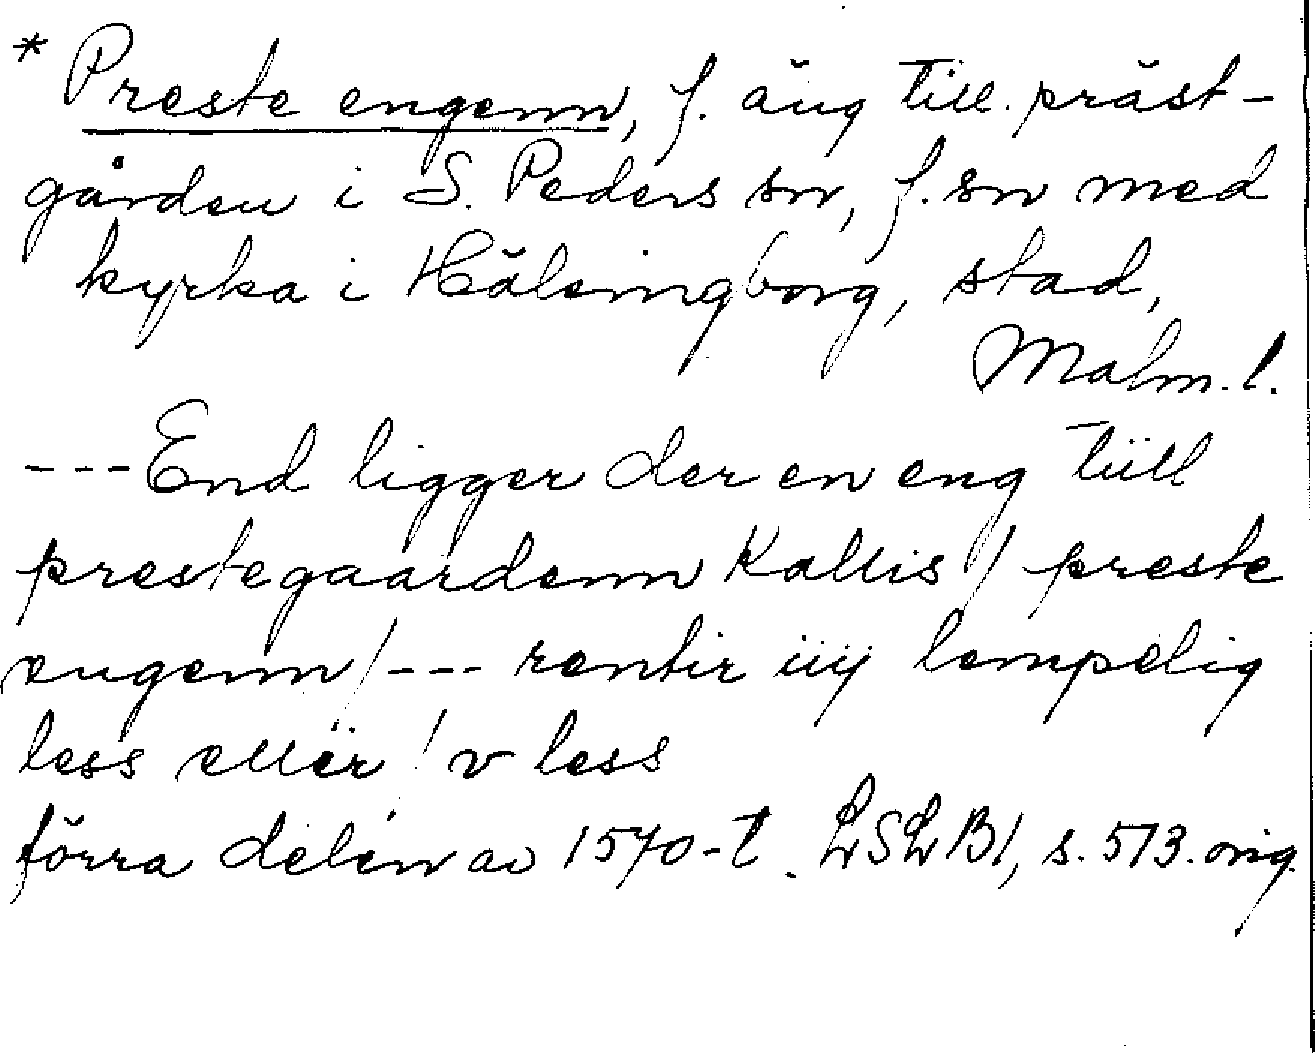 * Preste engenn, f. äng till präst-
gården i S. Peders sn, f. sn med
kyrka i Hälsingborg, stad,
Malm. l.
---End ligger der en eng tiill
prestegaardenn Kallis / preste
engenn/--- rentir iiij lempelig
less eller / v less
förra delen av 1570-t. LSLB1, s. 513. orig.